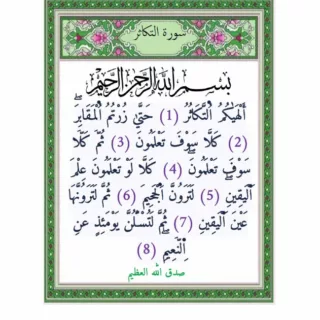 سورة التكاثر
بِسْمِ اللَّهِ الرَّحْمَنِ الرَّحِيمِ
أَلْهَاكُمُ التَّكَاثُرُ (1) حَتَّىٰ زُرْتُمُ الْمَقَابِرَ
(2) كَلَّا سَوْفَ تَعْلَمُونَ (3) ثُمَّ كَلَّا
سَوْفَ تَعْلَمُونَ (4) كَلَّا لَوْ تَعْلَمُونَ عِلْمَ
الْيَقِينِ (5) لَتَرَوُنَّ الْجَحِيمَ (6) ثُمَّ لَتَرَوُنَّهَا
عَيْنَ الْيَقِينِ (7) ثُمَّ لَتُسْأَلُنَّ يَوْمَئِذٍ عَنِ
النَّعِيمِ (8)
صدق الله العظيم